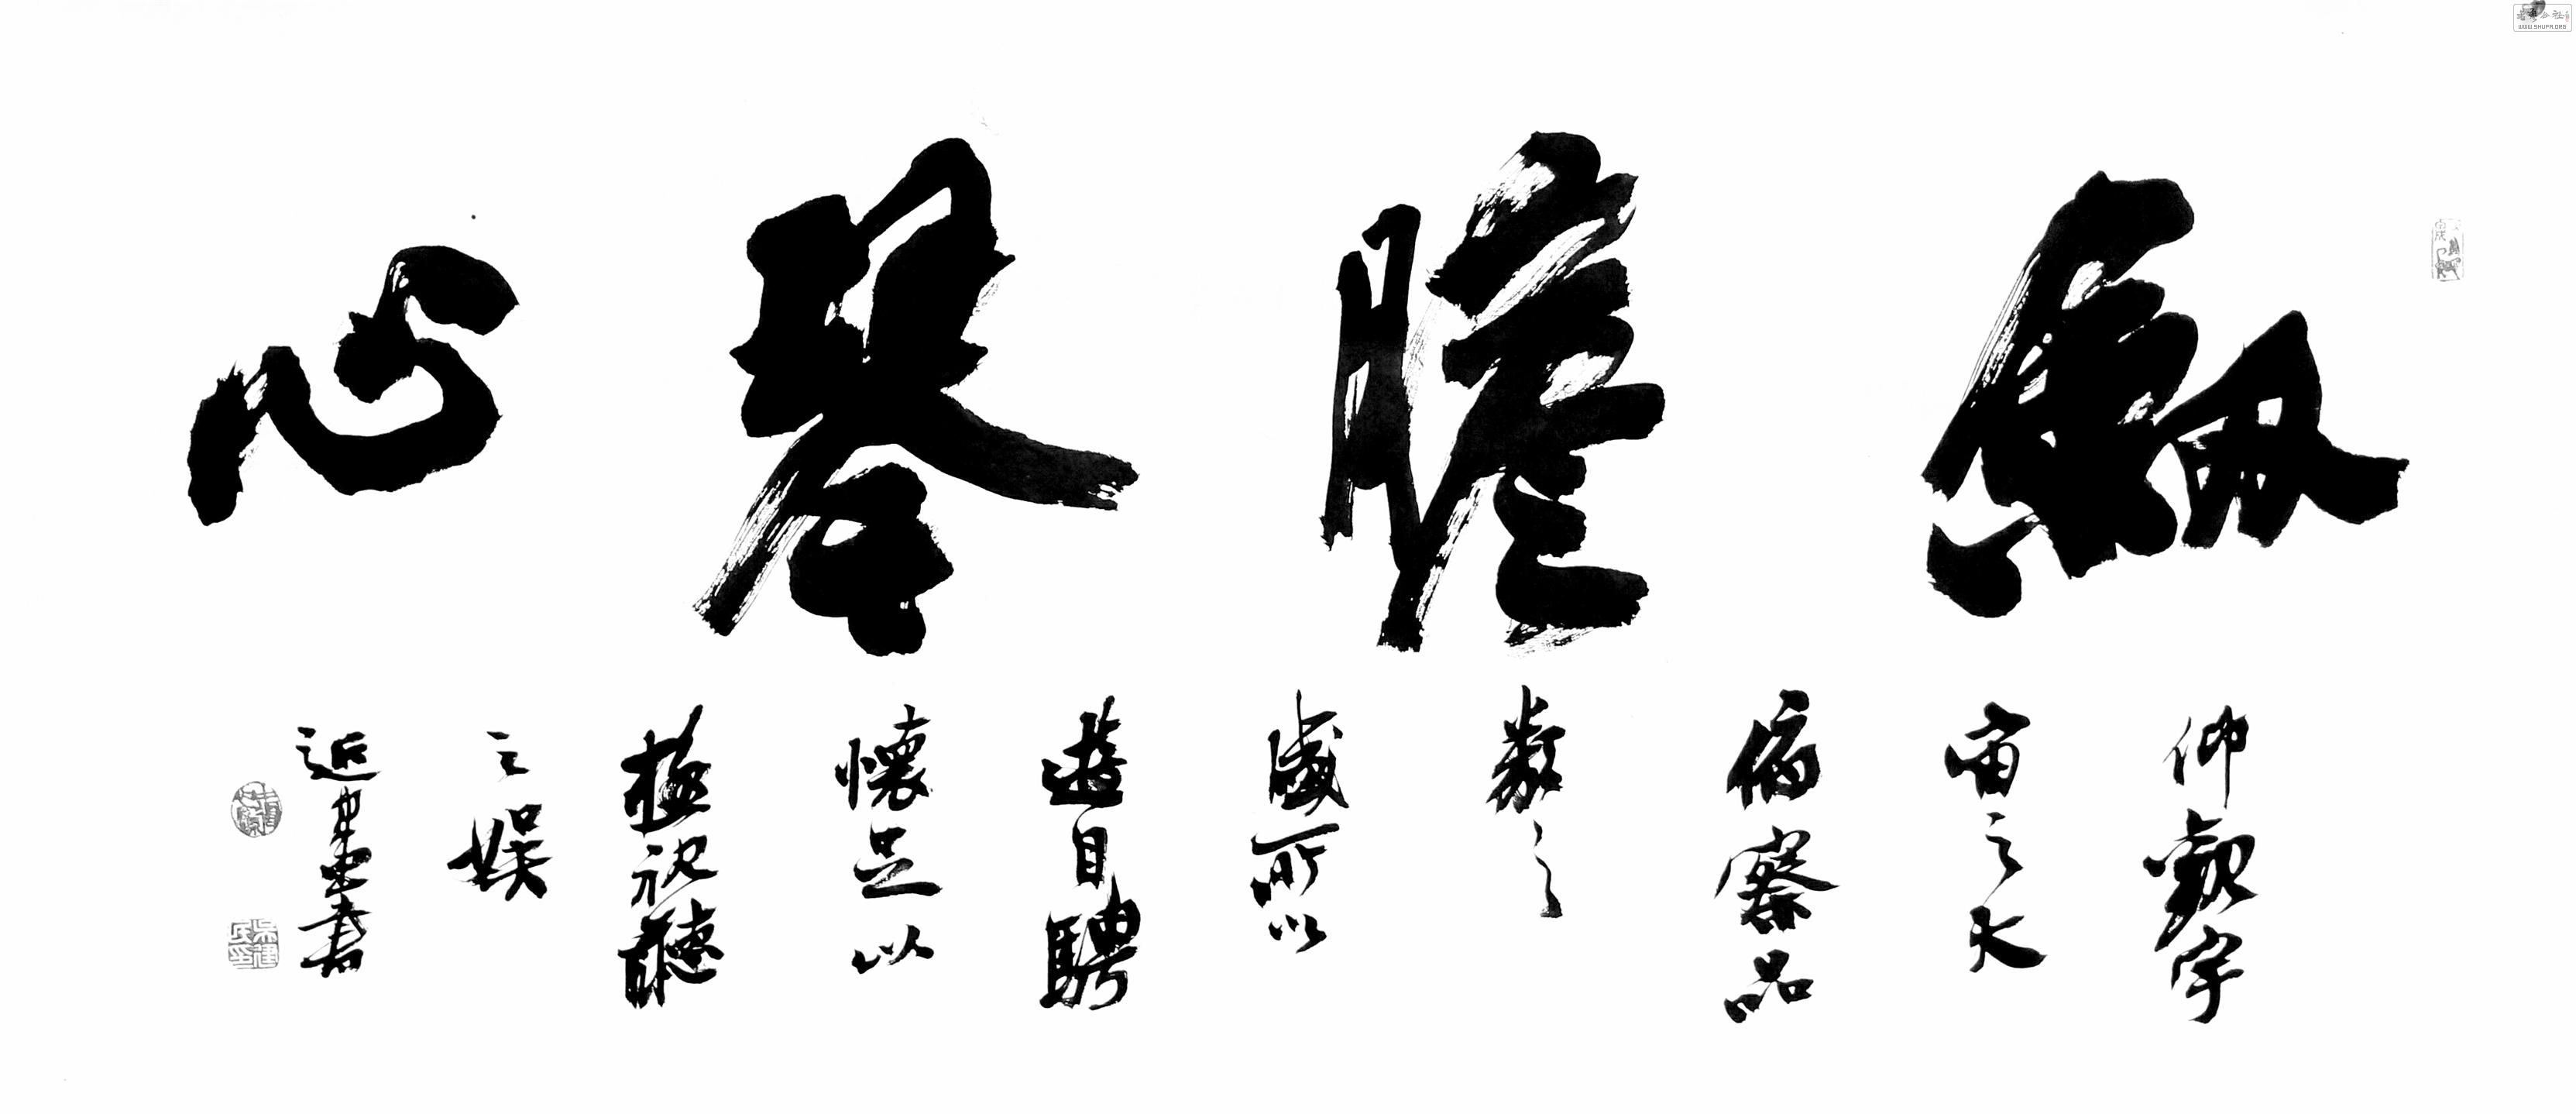 劍膽琴心
仰觀宇
宙之大
俯察品
類之
盛所以
遊目騁
懷足以
極視聽
之娛
書
WWW.SHUFA.ORG